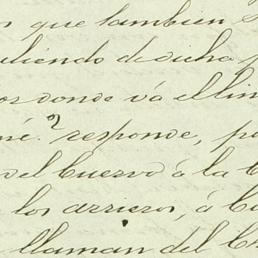 que tambien
saliendo de dicha
donde vá el lin
né? responde, pa
del Cuervo á la C
los arrieros, á Cu
llaman del Ch